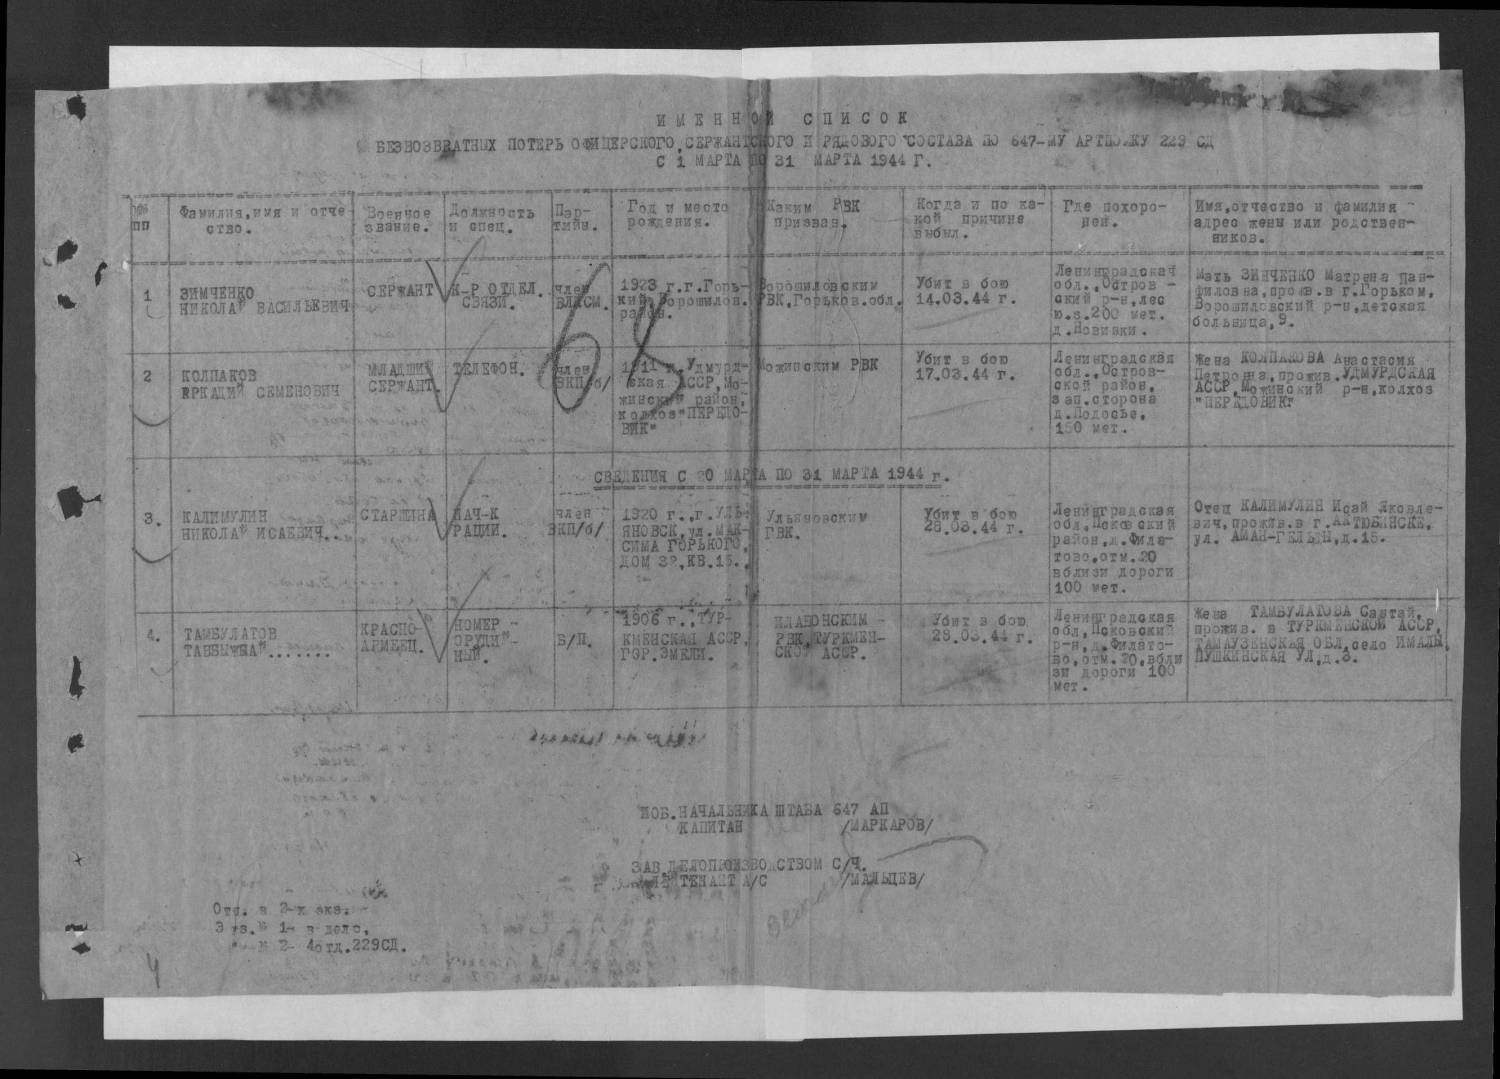 ИМЕННОЙ СПИСОК
БЕЗВОЗВРАТНЫХ ПОТЕРЬ ОФИЦЕРСКОГО, СЕРЖАНТСКОГО И РЯДОВОГО СОСТАВА ПО 647-МУ АРТПОЛКУ 229 СД
С 1 МАРТА ПО 31 МАРТА 1944 Г.
№№ пп
Фамилия, имя и отче-
ство.
Военное
звание.
Должность
и спец.
Пар-
тийн.
Год и место
рождения.
Каким РВК
призван.
Когда и по ка-
кой причине
выбыл.
Где похоро-
нен.
Имя, отчество и фамилия
адрес жены или родствен-
ников.
1
ЗИМЧЕНКО
НИКОЛАЙ ВАСИЛЬЕВИЧ
СЕРЖАНТ
К-Р ОТДЕЛ.
СВЯЗИ.
член
ВЛКСМ.
1923 г.г.Горь-
кий, Ворошилов.
район.
Ворошиловским
РВК, Горьков.обл.
Убит в бою
14.03.44 г.
Ленинградской
обл., Остров-
ский р-н, лес
ю.з.200 мет.
д.Новинки.
Мать ЗИНЧЕНКО Матрена Пан-
филовна, прожив.в г.Горьком,
Ворошиловский р-н, детская
больница, 9.
2
КОЛПАКОВ
АРКАДИЙ СЕМЕНОВИЧ
МЛАДШИЙ
СЕРЖАНТ.
ТЕЛЕФОН.
член
ВКП/б/
1911 г. Удмурд-
ская АССР, Мо-
жинский район,
колхоз "ПЕРЕДО-
ВИК"
Можинским РВК
Убит в бою
17.03.44 г.
Ленинградская
обл., Остров-
ской район,
зап.сторона
д.Подосье,
150 мет.
Жена КОЛПАКОВА Анастасия
Петровна, прожив. УДМУРДСКАЯ
АССР, Можинский р-н, колхоз
"ПЕРЕДОВИК"
СВЕДЕНИЯ С 20 МАРТА ПО 31 МАРТА 1944 г.
3.
КАЛИМУЛИН
НИКОЛАЙ ИСАЕВИЧ..
СТАРШИНА
НАЧ-К
РАЦИИ.
член
ВКП/б/
1920 г., г. УЛЬ-
ЯНОВСК, ул. МАК-
СИМА ГОРЬКОГО,
ДОМ 32, КВ.15.
Ульяновским
ГВК.
Убит в бою
28.03.44 г.
Ленинградская
обл, Псковский
район, д. Фила-
тово, отм.20
вблизи дороги
100 мет.
Отец КАЛИМУЛИН Исай Яковле-
вич, прожив.в г.АКТЮБИНСКЕ,
ул. АМАН-ГЕЛЬДЫ, д.15.
4.
ТАМБУЛАТОВ
.......
КРАСНО-
АРМЕЕЦ.
НОМЕР -
ОРУДИЙ-
НЫЙ.
Б/П.
1906 г., ТУР-
КМЕНСКАЯ АССР,
ГОР.ЭМЕЛИ.
ИЛАБОНСКИМ -
РВК, ТУРКМЕН-
СКОЙ АССР.
Убит в бою
28.03.44 г.
Ленинградская
обл, Псковский
р-н, д.Филато-
во, отм.20, вбли
зи дороги 100
мет.
Жена ТАМБУЛАТОВА Салтай,
прожив. в ТУРКМЕНСКОЙ АССР,
ТАМАУЗЕНСКАЯ ОБЛ, село ИМАЛЫ,
ПУШКИНСКАЯ УЛ, д.3.
68
ПОБ.НАЧАЛЬНИКА ШТАБА 647 АП
КАПИТАН /МАРКАРОВ/
ЗАВ ДЕЛОПРОИЗВОДСТВОМ С/Ч.
ТЕНАНТ А/С /МАЛЬЦЕВ/
Отп. в 2-х экз.
Экз.№ 1- в дело,
" № 2- 4отд.229СД.
4